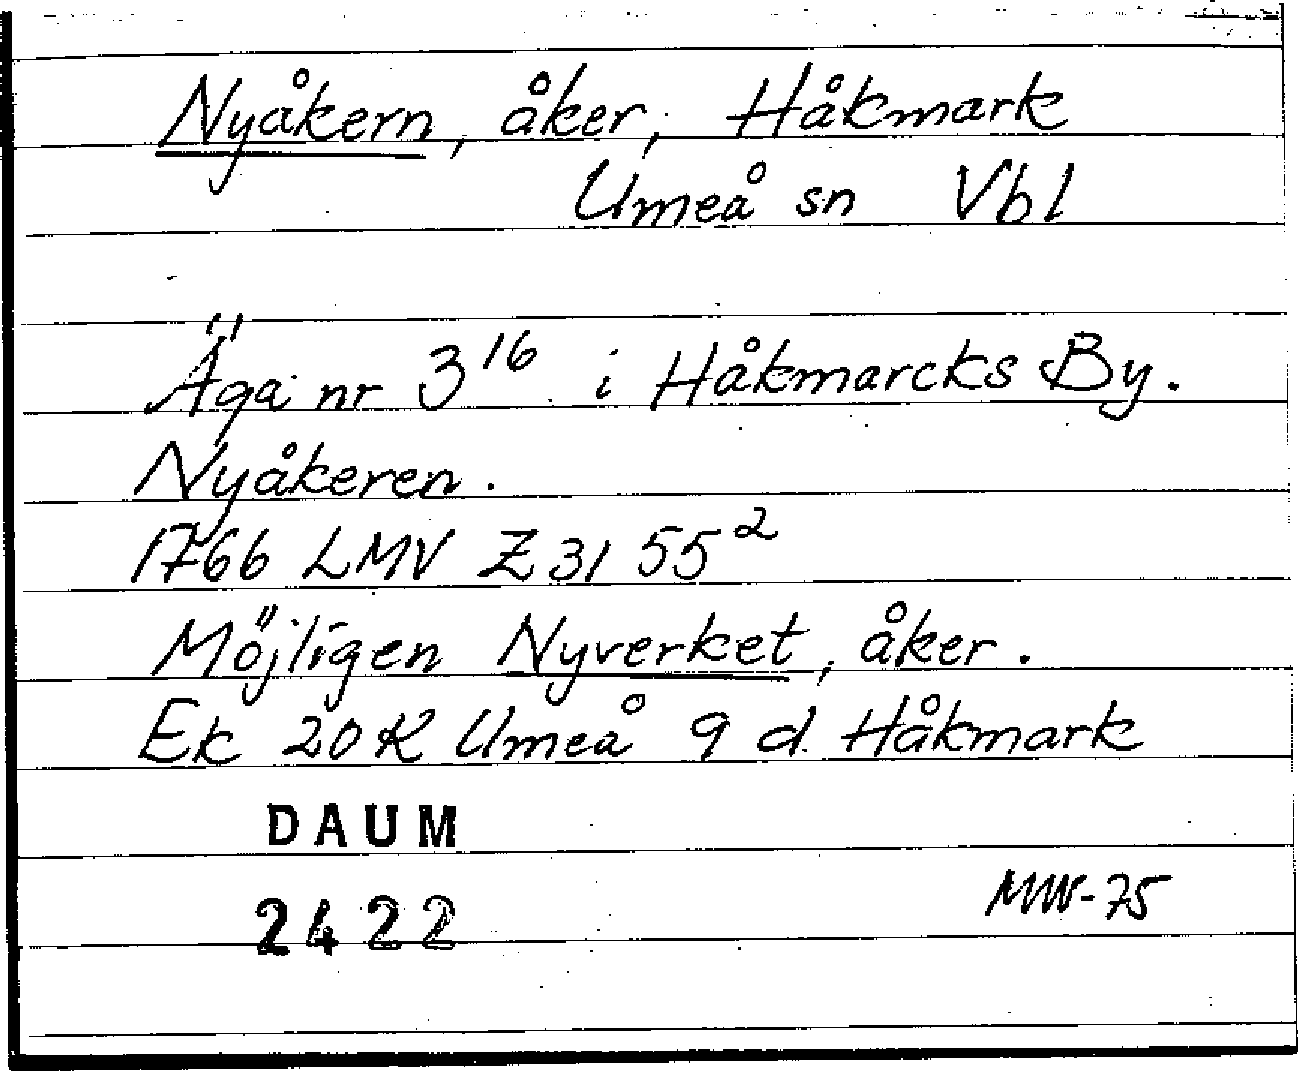 Nyåkern, åker, Håkmark
Umeå sn Vbl
Äga nr 3¹⁶ i Håkmarcks By.
Nyåkeren.
1766 LMV Z31 55²
Möjligen Nyverket, åker.
Ek 20K Umeå 9 d Håkmark
DAUM
2422
MW-75